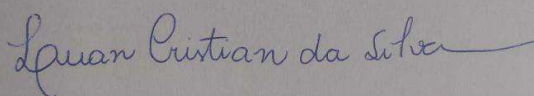 Luan Cristian da Silva